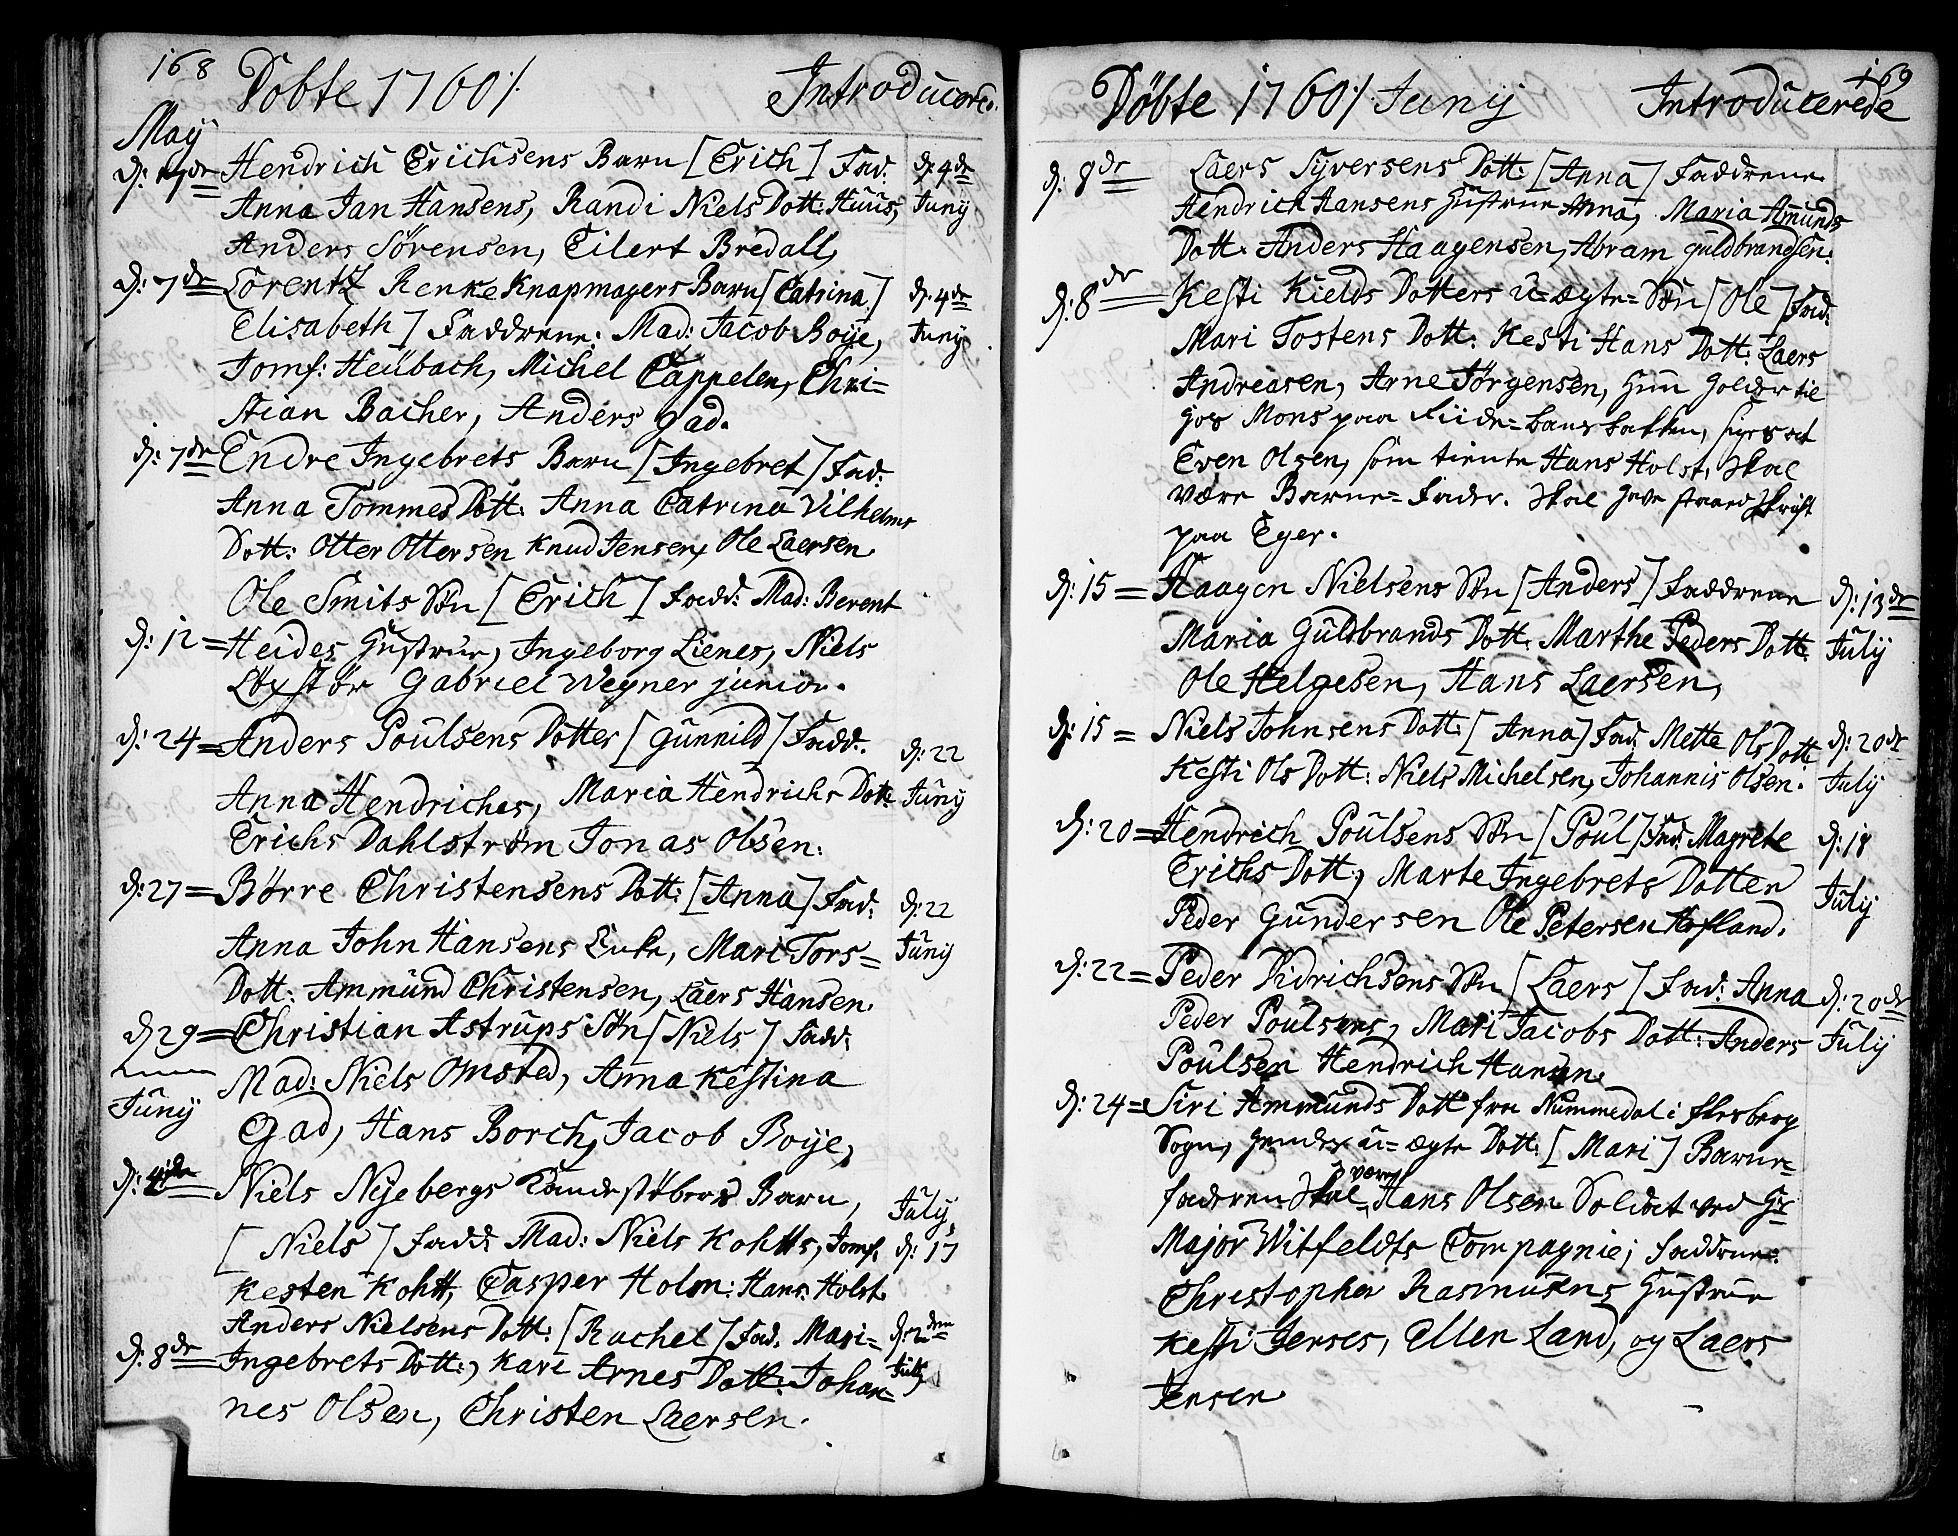 168 Döbte 1760 ·/. Introducered.
May
d: 7de Hendrich Erichsens Barn [Erich] Fad: d: 4de
Anna Jan Hansens, Randi Niels Dott: Huus, Juny
Anders Sørensen, Eilert Bredall,
d: 7de Lorentz Renke Knapmagers Barn [Catrina d: 4de
Elisabeth] Faddrene: Mad: Jacob Boye, Juny
Jomf: Heübach, Michel Cappelen, Chri=
stian Bacher, Anders Gad.
d: 7de Endre Ingebrets Barn [Ingebret] Fad:
Anna Tommes Dott: Anna Catrina Vilhelms
Dott: Otter Ottersen Knud Jensen, Ole Laersen
Ole Smits Sön [Erich] Fadd: Mad: Berent
d: 12 = Heides Hustrue, Ingeborg Lienes, Niels
Løxstør Gabriel Wegner junior.
d: 24 = Anders Poulsens Dotter [Gunnild] Fadd: d: 22
Anna Hendriches, Maria Hendrichs Dott: Juny
Erichs Dahlstrøm Jonas Olsen.
d: 27 = Börre Christensens Dott: [Anna] Fad: d: 22
Anna John Hansens Enke, Mari Tors= Juny
Dott: Ammünd Christensen, Laers Hansen.
d 29 = Christian Astrups Sön [Niels] Fadd:
Mad: Niels Omsted, Anna Kestina
Juny
Gad, Hans Borch, Jacob Boye,
d: 4de Niels Nyebergs Kandestøbers Barn, July
[Niels] Fadd: Mad: Niels Kohtts, Jomf: d: 17
Kesten Kohtt, Casper Holm: Hans Holst
Anders Nielsens Dott: [Rachel] Fad. Mari= d: 2den
d: 8de Ingebrets Dott:, Kari Arnes Dott: Johan= July
nes Olsen, Christen Laersen.
Döbte 1760 ·/. Junij Introducerede 169
d: 8de Laers Syversens Dott: [Anna] Faddrene
Hendrich Hansens Hustrue Anna, Maria Amünds
Dott. Anders Haagensen, Abram Guldbrandsen.
d: 8de Kesti Kields Dotters u-ægte= Sön [Ole] Fad:
Mari Tostens Dott: Kesti Hans Dott: Laers
Andreasen, Arne Jörgensen, Hun holder til
hos Mons paa bakken, siges at
Even Olsen, som tiente Hans Holst, skal
være Barne=Fader. Skal have staaed Skrift
paa Eger.
d: 15 = Haagen Nielsens Sön [Anders] Faddrene d: 13de
Maria Guldbrands Dott. Marthe Peders Dott. July
Ole Helgesen, Hans Laersen,
d: 15 = Niels Johnsens Dott: [Anna] Fad: Mette Ols Dott d: 20de
Kesti Ols Dott: Niels Michelsen, Johannis Olsen. July
d: 20 = Hendrich Poulsens Sön [Poul] Fad: Magrete d: 18
Erichs Dott:, Marte Ingebrets Dotter July
Peder Gundersen Ole Petersen Hofland.
d: 22 = Peder Didrichsens Sön [Laers] Fad: Anna d: 20de
Peder Poulsens, Mari Jacobs Dott: Anders July
Poulsen Hendrich Hansen.
d: 24 = Siri Ammunds Dott fra Nummedal i Flesberg
Sogn, hendes u=ægte Dott: [Mari] Barne=
faderen skal være Hans Olsen Soldat ved Hr
Major Witfeldts Compagnie; Faddrene:
Christopher Rasmusens Hustrue
Kesti Jenses, Ellen Land, og Laers
Jensen